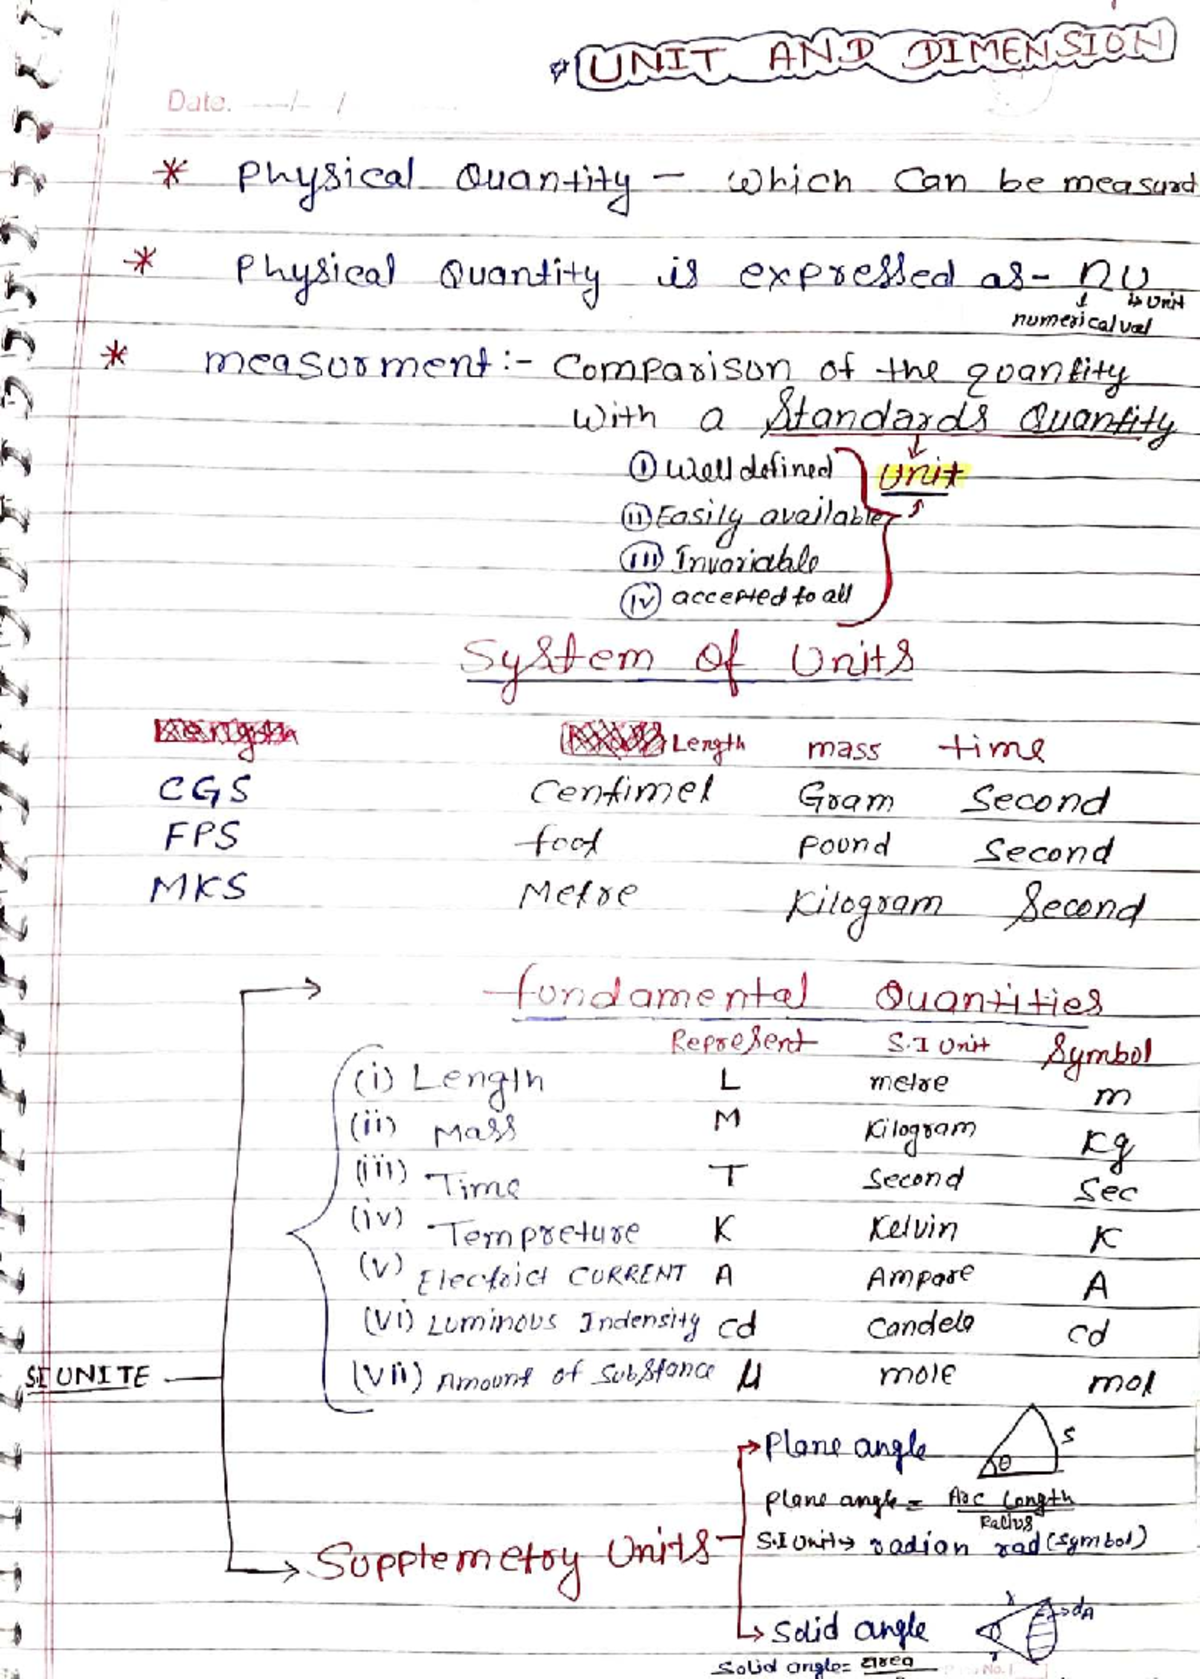 UNIT AND DIMENSION
Date. __/__/
* Physical Quantity - which can be measurd
* Physical Quantity is expressed as - nu
↓ ↳ Unit
numerical val
* measurment :- Comparison of the quantity
with a Standards Quantity
(i) Well defined Unit
(ii) Easily available
(iii) Invariable
(iv) accepted to all
System of Units
Length mass time
CGS Centimet Gram Second
FPS foot Pound Second
MKS Metre Kilogram Second
fundamental Quantities
Represent S.I Unit Symbol
(i) Length L metre m
(ii) Mass M Kilogram Kg
(iii) Time T Second Sec
(iv) Tempreture K Kelvin K
(v) Electrict CURRENT A Ampare A
(vi) Luminous Indensity cd Candela cd
SI UNITE (vii) Amount of Substance μ mole mol
Plane angle θ S
Plane angle = Arc Length
Radius
Supplemetry Units S.I Unit → radian rad (symbol)
Solid angle r dA
r
Solid angle = area